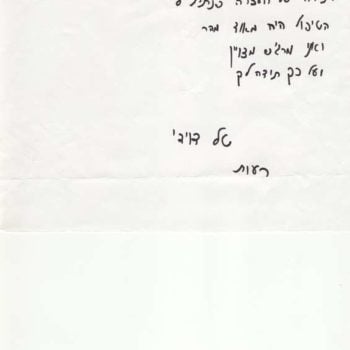 הטיפול היה מאוד מהר
ואני מרגיש מצויין
ועל כך תודה לך
טל דויבי
רעות